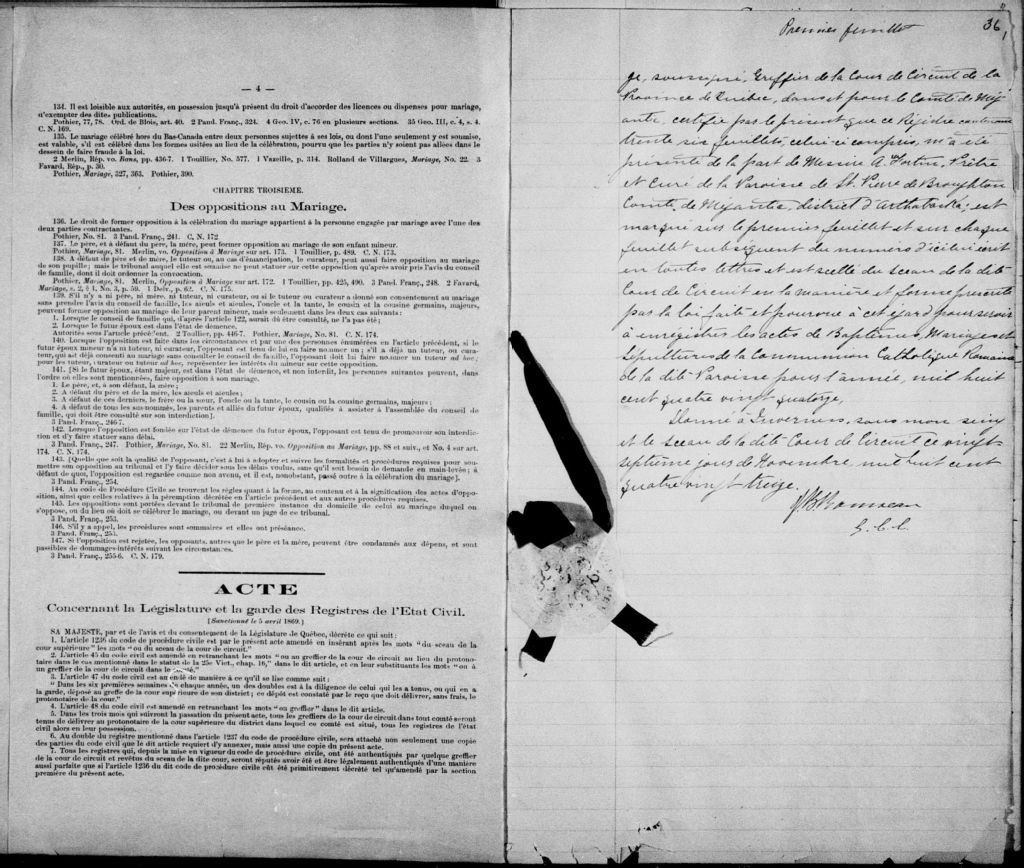 — 4 —
134. Il est loisible aux autorités, en possession jusqu'à présent du droit d'accorder des licences ou dispenses pour mariage,
d'exempter des dites publications.
Pothier, 77, 78. Ord. de Blois, art. 40. 2 Pand. Franç., 324. 4 Geo. IV, c. 76 en plusieurs sections. 35 Geo. III, c. 4, s. 4.
C. N. 169.
135. Le mariage célébré hors du Bas-Canada entre deux personnes sujettes à ses lois, ou dont l'une seulement y est soumise,
est valable, s'il est célébré dans les formes usitées au lieu de la célébration, pourvu que les parties n'y soient pas allées dans le
dessein de faire fraude à la loi.
2 Merlin, Rép. vo. Bans, pp. 436-7. 1 Touillier, No. 577. 1 Vazeille, p. 314. Rolland de Villargues, Mariage, No. 22. 3
Favard, Rép., p. 30.
Pothier, Mariage, 327, 363. Pothier, 390.
CHAPITRE TROISIEME.
Des oppositions au Mariage.
136. Le droit de former opposition à la célébration du mariage appartient à la personne engagée par mariage avec l'une des
deux parties contractantes.
Pothier, No. 81. 3 Pand. Franç., 241. C. N. 172
137. Le père, et à défaut du père, la mère, peut former opposition au mariage de son enfant mineur.
Pothier, Mariage, 81. Merlin, vo. Opposition à Mariage sur art. 173. 1 Touillier, p. 489. C. N. 173.
138. A défaut de père et de mère, le tuteur ou, au cas d'émancipation, le curateur, peut aussi faire opposition au mariage
de son pupille; mais le tribunal auquel elle est soumise ne peut statuer sur cette opposition qu'après avoir pris l'avis du conseil
de famille, dont il doit ordonner la convocation.
Pothier, Mariage, 81. Merlin, Opposition à Mariage sur art. 172. 1 Touillier, pp. 425, 490. 3 Pand. Franç., 248. 2 Favard,
Mariage, s. 2, § 4, No. 3, p. 59. 1 Delv., p. 62. C. N. 175.
139. S'il n'y a ni père, ni mère, ni tuteur, ni curateur, ou si le tuteur ou curateur a donné son consentement au mariage
sans prendre l'avis du conseil de famille, les aïeuls et aïeules, l'oncle et la tante, le cousin et la cousine germains, majeurs,
peuvent former opposition au mariage de leur parent mineur, mais seulement dans les deux cas suivants:
1. Lorsque le conseil de famille qui, d'après l'article 122, aurait dû être consulté, ne l'a pas été;
2. Lorsque le futur époux est dans l'état de démence.
Autorités sous l'article précédent. 2 Toullier, pp. 446-7. Pothier, Mariage, No. 81. C. N. 174.
140. Lorsque l'opposition est faite dans les circonstances et par une des personnes énumérées en l'article précédent, si le
futur époux mineur n'a ni tuteur, ni curateur, l'opposant est tenu de lui en faire nommer un; s'il a déjà un tuteur, ou curateur,
qui ait déjà consenti au mariage sans consulter le conseil de famille, l'opposant doit lui faire nommer un tuteur ad hoc;
pour les tuteur, curateur ou tuteur ad hoc, représenter les intérêts du mineur sur cette opposition.
141. [Si le futur époux, étant majeur, est dans l'état de démence, et non interdit, les personnes suivantes peuvent, dans
l'ordre où elles sont mentionnées, faire opposition à son mariage.
1. Le père, et, à son défaut, la mère;
2. A défaut du père et de la mère, les aïeuls et aïeules;
3. A défaut de ces derniers, le frère ou la sœur, l'oncle ou la tante, le cousin ou la cousine germains, majeurs;
4. A défaut de tous les sus-nommés, les parents et alliés du futur époux, qualifiés à assister à l'assemblée du conseil de
famille, qui doit être consulté sur son interdiction].
3 Pand. Franç., 246-7.
142. Lorsque l'opposition est fondée sur l'état de démence du futur époux, l'opposant est tenu de promouvoir son interdiction
et d'y faire statuer sans délai.
3 Pand. Franç., 247. Pothier, Mariage, No. 81. 22 Merlin, Rép. vo. Opposition au Mariage, pp. 88 et suiv., et No. 4 sur art.
174. C. N. 174.
143. [Quelle que soit la qualité de l'opposant, c'est à lui à adopter et suivre les formalités et procédures requises pour soumettre
son opposition au tribunal et l'y faire décider sous les délais voulus, sans qu'il soit besoin de demande en main-levée; à
défaut de quoi, l'opposition est regardée comme non avenu, et il est, nonobstant, passé outre à la célébration du mariage].
3 Pand. Franç., 254.
144. Au code de Procédure Civile se trouvent les règles quant à la forme, au contenu et à la signification des actes d'opposition,
ainsi que celles relatives à la péremption décrétée en l'article précédent et aux autres procédures requises.
145. Les oppositions sont portées devant le tribunal de première instance du domicile de celui au mariage duquel on
s'oppose, ou du lieu où doit se célébrer le mariage, ou devant un juge de ce tribunal.
3 Pand. Franç., 253.
146. S'il y a appel, les procédures sont sommaires et elles ont préséance.
3 Pand. Franç., 253.
147. Si l'opposition est rejetée, les opposants, autres que le père et la mère, peuvent être condamnés aux dépens, et sont
passibles de dommages-intérêts suivant les circonstances.
3 Pand. Franç., 255-6. C. N. 179.
ACTE
Concernant la Législature et la garde des Registres de l'Etat Civil.
[Sanctionné le 5 avril 1869.]
SA MAJESTE, par et de l'avis et du consentement de la Législature de Québec, décrète ce qui suit:
1. L'article 1236 du code de procédure civile est par le présent acte amendé en insérant après les mots "du sceau de la
cour supérieure" les mots "ou du sceau de la cour de circuit."
2. L'article 45 du code civil est amendé en retranchant les mots "ou au greffier de la cour de circuit au lieu du protonotaire
dans le cas mentionné dans le statut de la 25e Vict., chap. 16," dans le dit article, et en leur substituants les mots "ou à
un greffier de la cour de circuit dans le comté,"
3. L'article 47 du code civil est amendé de manière à ce qu'il se lise comme suit:
"Dans les six premières semaines de chaque année, un des doubles est à la diligence de celui qui les a tenus, ou qui en a
la garde, déposé au greffe de la cour supérieure de son district; ce dépôt est constaté par le reçu que doit délivrer, sans frais, le
protonotaire de la cour."
4. L'article 48 du code civil est amendé en retranchant les mots "ou greffier" dans le dit article.
5. Dans les trois mois qui suivront la passation du présent acte, tous les greffiers de la cour de circuit dans tout comté seront
tenus de délivrer au protonotaire de la cour supérieure du district dans lequel ce comté est situé, tous les registres de l'état
civil alors en leur possession.
6. Au double du registre mentionné dans l'article 1237 du code de procédure civile, sera attaché non seulement une copie
des parties du code civil que le dit article requiert d'y annexer, mais aussi une copie du présent acte.
7. Tous les registres qui, depuis la mise en vigueur du code de procédure civile, ont été authentiqués par quelque greffier
de la cour de circuit et revêtus du sceau de la dite cour, seront réputés avoir été et être légalement authentiqués d'une manière
aussi parfaite que si l'article 1236 du dit code de procédure civile eût été primitivement décrété tel qu'amendé par la section
première du présent acte.
Premier feuillet
36
Je, soussigné, Greffier de la Cour de Circuit de la
Province de Québec, dans et pour le Comté de Még
antic, certifie par le présent que ce Régistre contenant
trente six feuillets, celui ci compris, m'a été
présenté de la part de Messire A. Fortin, Prêtre
et Curé de la Paroisse de St. Pierre de Broughton
Comté de Mégantic, district d'Arthabaska; est
marqué sur le premier feuillet et sur chaque
feuillet subséquent du numéro d'icelui écrit
en toutes lettres et est scellé du Sceau de la dite
Cour de Circuit en la manière et forme prescrite
par la loi faite et pourvue à cet égard pour servir
à enregistrer les actes de Baptêmes, Mariages et
Sépultures de la Communion Catholique Romaine
de la dite Paroisse pour l'année, mil huit
cent quatre vingt quatorze,
Donné à Inverness, sous mon seing
et le Sceau de la dite Cour de Circuit ce vingt
septième jour de Novembre, mil huit cent
quatre vingt treize.
G. C. C.